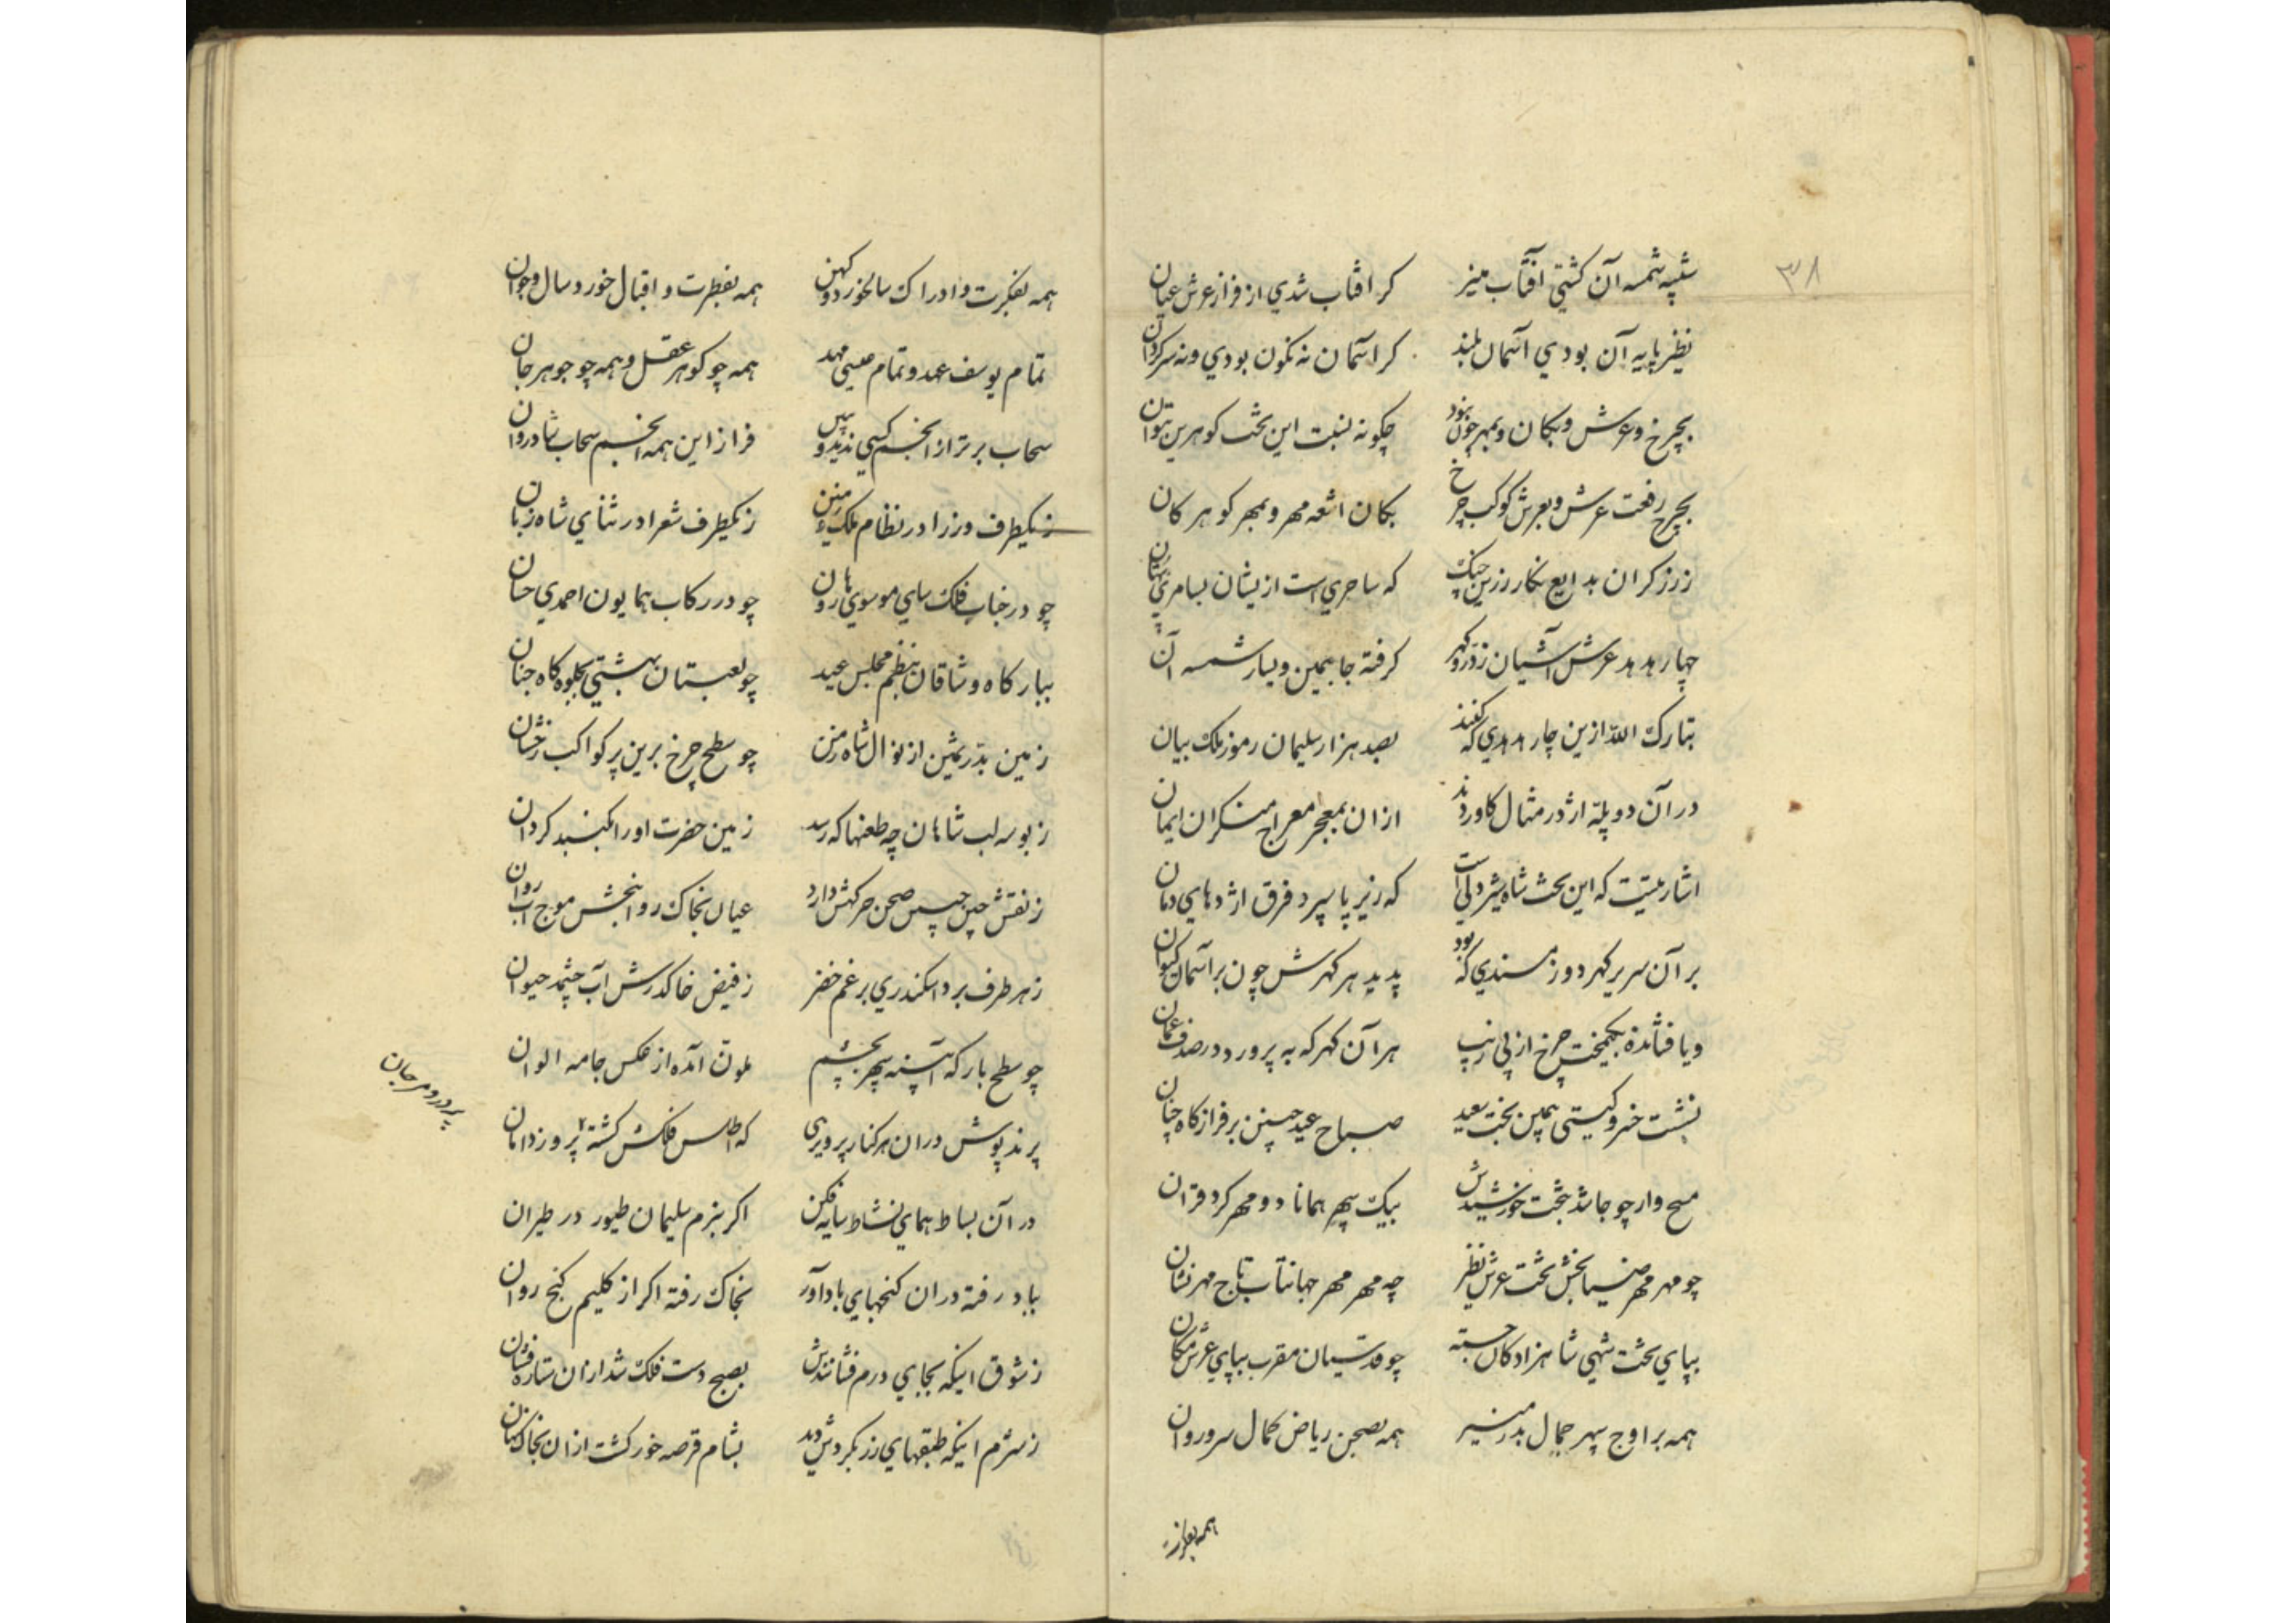 ۳۸
شبیه شمسه آن کشتی آفتاب منیر کر افتاب شدی از فراز عرش عیان
نظیر پایه آن بودی آسمان بلند کر اسمان نه نکون بودی و نه سرکردان
بچرخ و عرش و بکان و ببحر چون بود چکونه نسبت این تخت کوهرین بتوان
بچرخ رفعت عرش و بعرش کوکب چرخ بکان اشعه مهر و ببحر کوهر کان
ز زرکران بدایع نکار زرین چنک که ساحری است ازیشان بسامری
چهار هدهد عرش آشیان ز زر و کهر کرفته جا بیمین و یسار شمسه آن
تبارک الله ازین چار هدهدی که کنند بصد هزار سلیمان رموز ملک بیان
در آن دو پله اژدر مثال کاوردند ازان بمعجز معراج منکران ایمان
اشارتیست که این تخت شاه شیردلی است که زیر پا سپرد فرق اژدهای دمان
بر آن سریر کهر دوز مسندی که بود پدید هر کهرش چون بر آسمان کیوان
و یا فشانده بکیمخت چرخ از پی زیب هر آن کهر که به پرورد در صدف عمان
نشست خسرو کیتی بیمین بخت سعید صباح عید چنین بر فراز کاه چنان
مسیح وار چو جا شد بتخت خورشیدش بیک سپهر همانا دو مهر کرد قران
چو مهر مهر ضیا بخش تخت عرش نظیر چه مهر مهر جهانتاب تاج مهر نشان
بپای تخت شهی شاهزادکان خجسته چو قدسیان مقرب بپای عرش مکان
همه بر اوج سپهر جمال بدر منیر همه بصحن ریاض کمال سرو روان
همه بطرز
همه بفکرت و ادراک سالخورد و کهن همه بفطرت و اقبال خورد سال و جوان
تمام یوسف عهد و تمام عیسی مهد همه چو کوهر عقل و همه چو جوهر جان
سحاب برتر از انجم کسی ندید و ببین فراز این همه انجم سحاب شادروان
ز یکطرف وزرا در نظام ملک زمین ز یکطرف شعرا در ثنای شاه زمان
چو در جناب فلک سای موسوی هارون چو در رکاب همایون احمدی حسان
ببارکاه وشاقان بنظم مجلس عید چو لعبتان بهشتی بجلوه کاه جنان
زمین بدر ثمین از نوال شاه زمن چو سطح چرخ برین پر کواکب رخشان
ز بوسه لب شاهان چه طعنها که رسد زمین حضرت او را بکنبد کردان
ز نقش چین جبین صحن درکهش دارد عیان بخاک روانبخش موج آب روان
ز هر طرف برد اسکندری برغم خضر ز فیض خاک درش آب چشمه حیوان
چو سطح بارکه آئینه سپهر بچشم ملون آمده از عکس جامه الوان
پرند پوش دران هر کنار پرویزی که اطلس فلکش کشته پروز دامان
پر در و مرجان
در آن بساط همای نشاط سایه فکن اکر ببزم سلیمان طیور در طیران
بباد رفته دران کنجهای بادآور بخاک رفته اکر از کلیم کنج روان
ز شوق اینکه بجای درم فشانندش بصبح دست فلک شد ازان ستاره فشان
ز شرم اینکه طبقهای زر بکردش دید بشام قرصه خور کشت ازان بخاک نهان